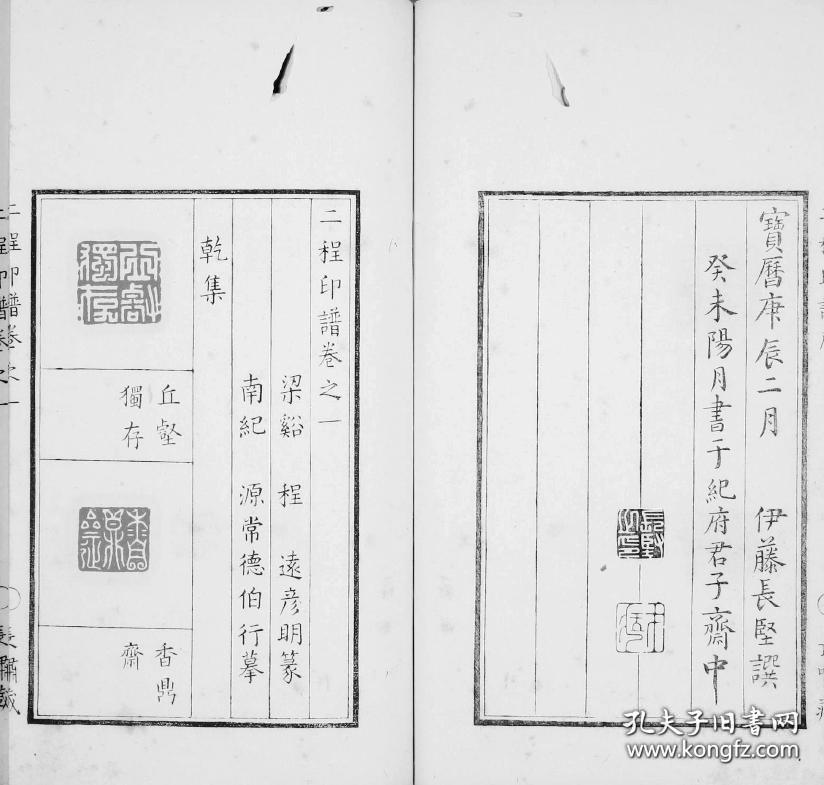 寶曆庚辰二月　伊藤長堅譔
癸未陽月書于紀府君子齋中
二程印譜卷之一
梁谿　程　遠彥明篆
南紀　源常德伯行摹
乾集
丘壑獨存
丘壑
獨存
香鼎
齋
二程印譜卷之一
孔夫子旧书网
www.kongfz.com